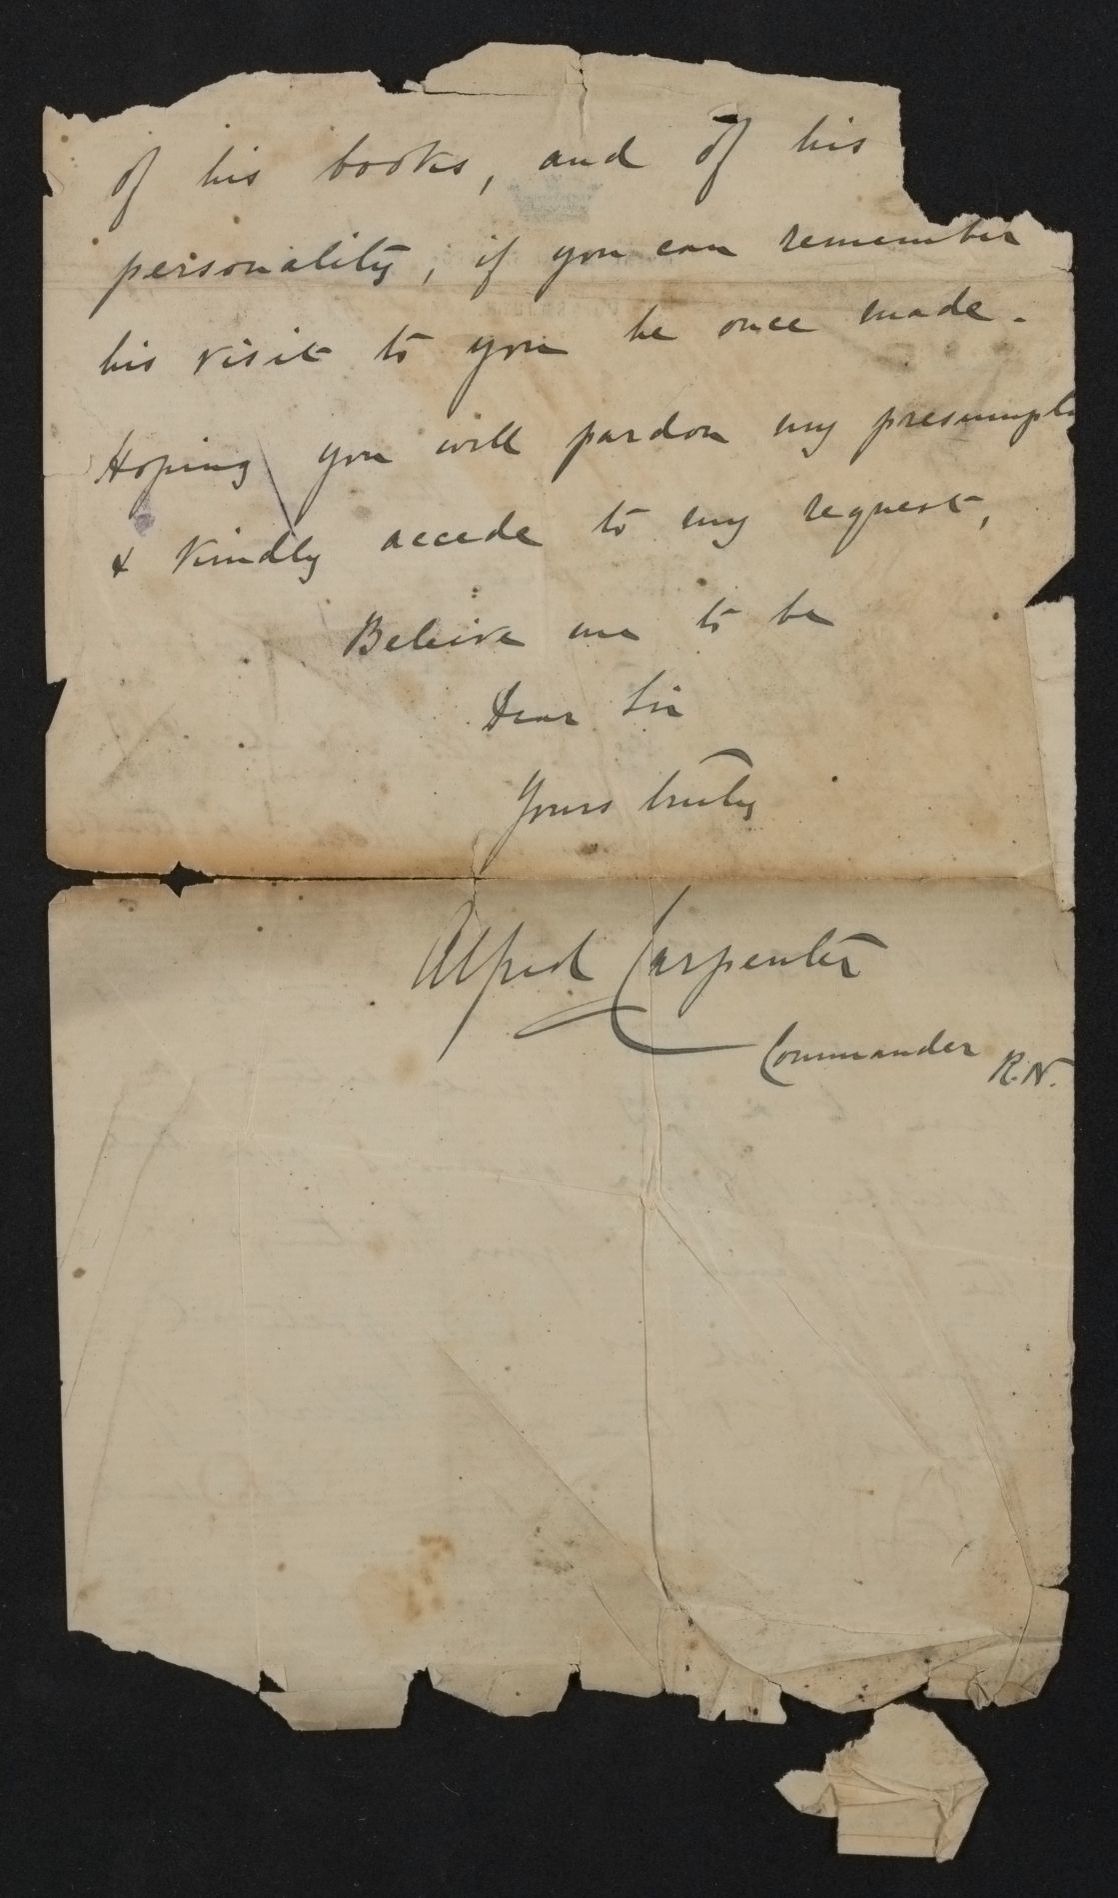 of his books, and of his
personality, if you can remember
his visit to you he once made.
Hoping you will pardon my presumpti
& kindly accede to my request,
Beleive me to be
Dear Sir
Yours truly
Alfred Carpenter
Commander R.N.